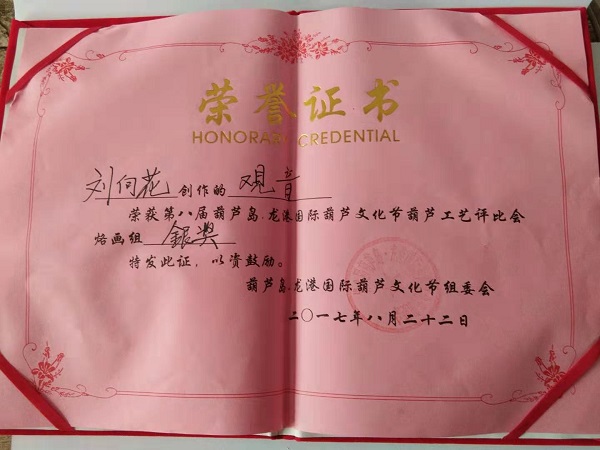 荣誉证书
HONORARY CREDENTIAL
刘向花创作的 观音
荣获第八届葫芦岛·龙港国际葫芦文化节葫芦工艺评比会
烙画组 銀奖
特发此证，以资鼓励。
葫芦岛·龙港国际葫芦文化节组委会
二〇一七年八月二十二日